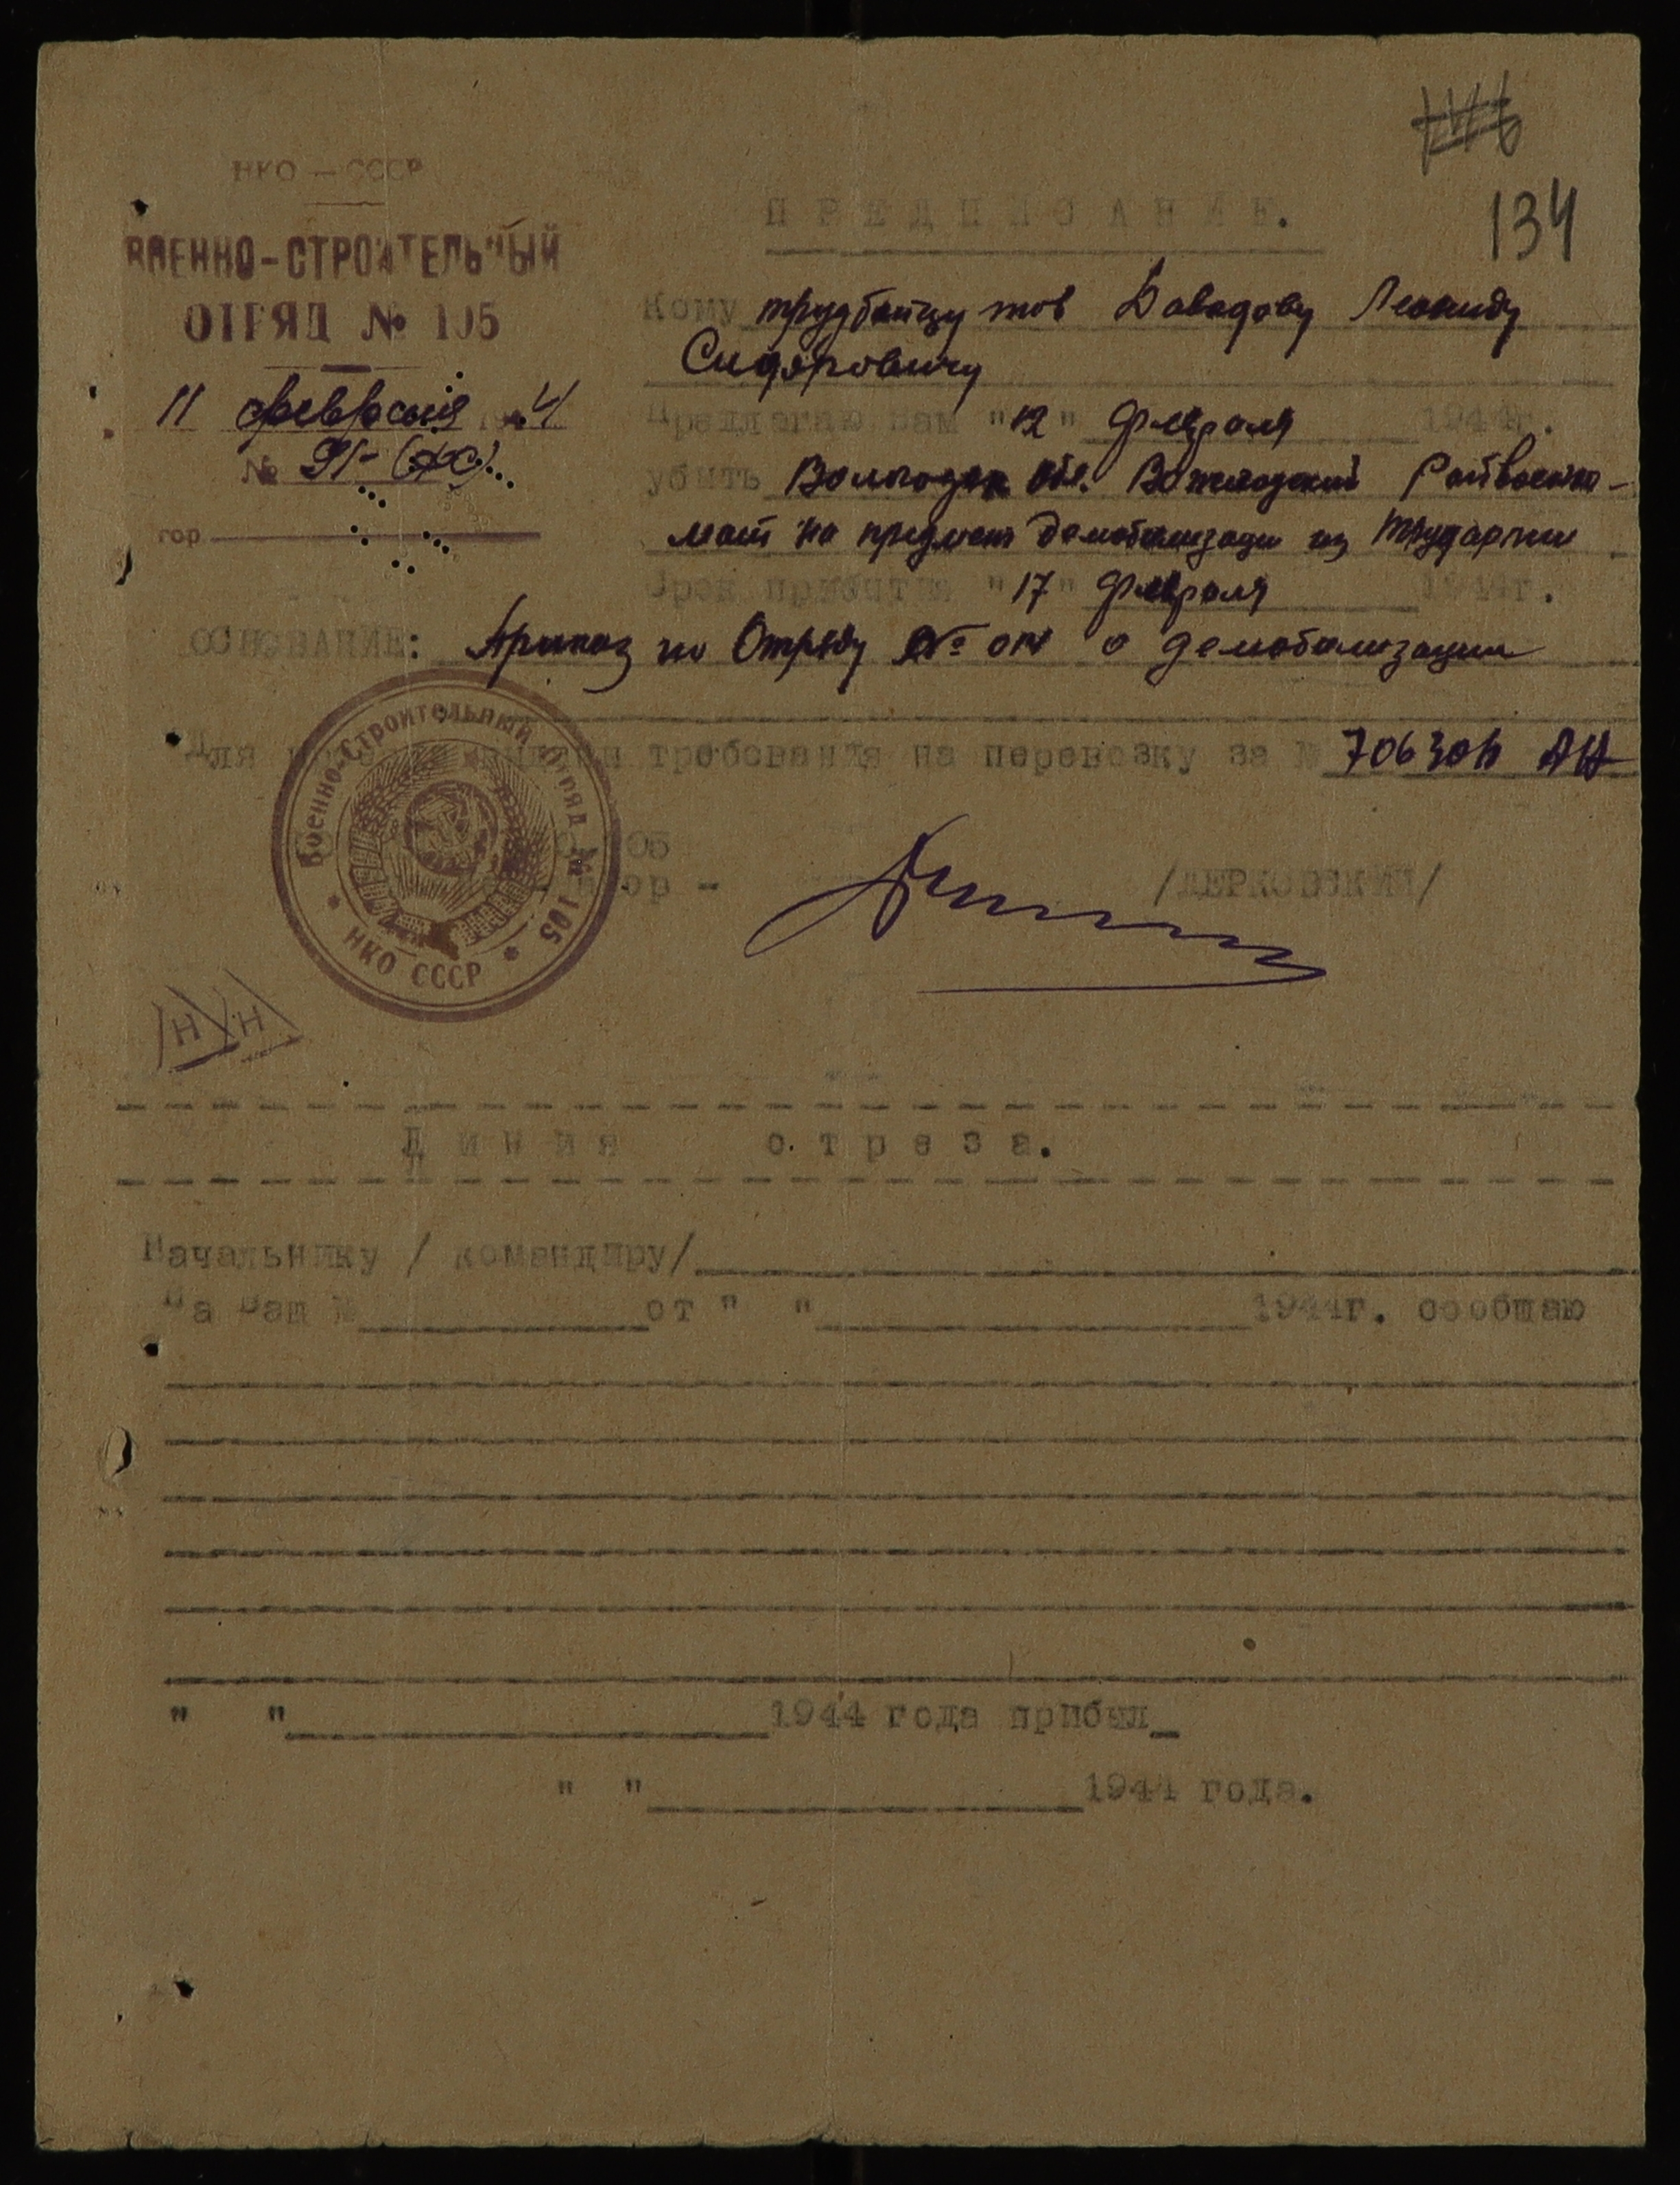 134
НКО — СССР
ВОЕННО-СТРОИТЕЛЬНЫЙ
ОТРЯД № 105
11 февраля 1944
№ 91-
гор
ПРЕДПИСАНИЕ.
Кому трудбойцу тов Давадову Леониду
Сидоровичу
Предлагаю Вам "12" февраля 1944г.
убыть Вологодск обл. Вожегодский Райвоенко-
мат на предмет демобилизации из трудармии
Срок прибытия "17" февраля 1944г.
ОСНОВАНИЕ: Приказ по Отряду № о демобилизации
Для требования на перевозку за №
/ДЕРКОВСКИЙ/
Военно-Строительный Отряд № 105
НКО СССР
Н Н
Линия отреза.
Начальнику / командиру/
На Ваш № от " " 1944г. сообщаю
" " 1944 года прибыл
" " 1944 года.